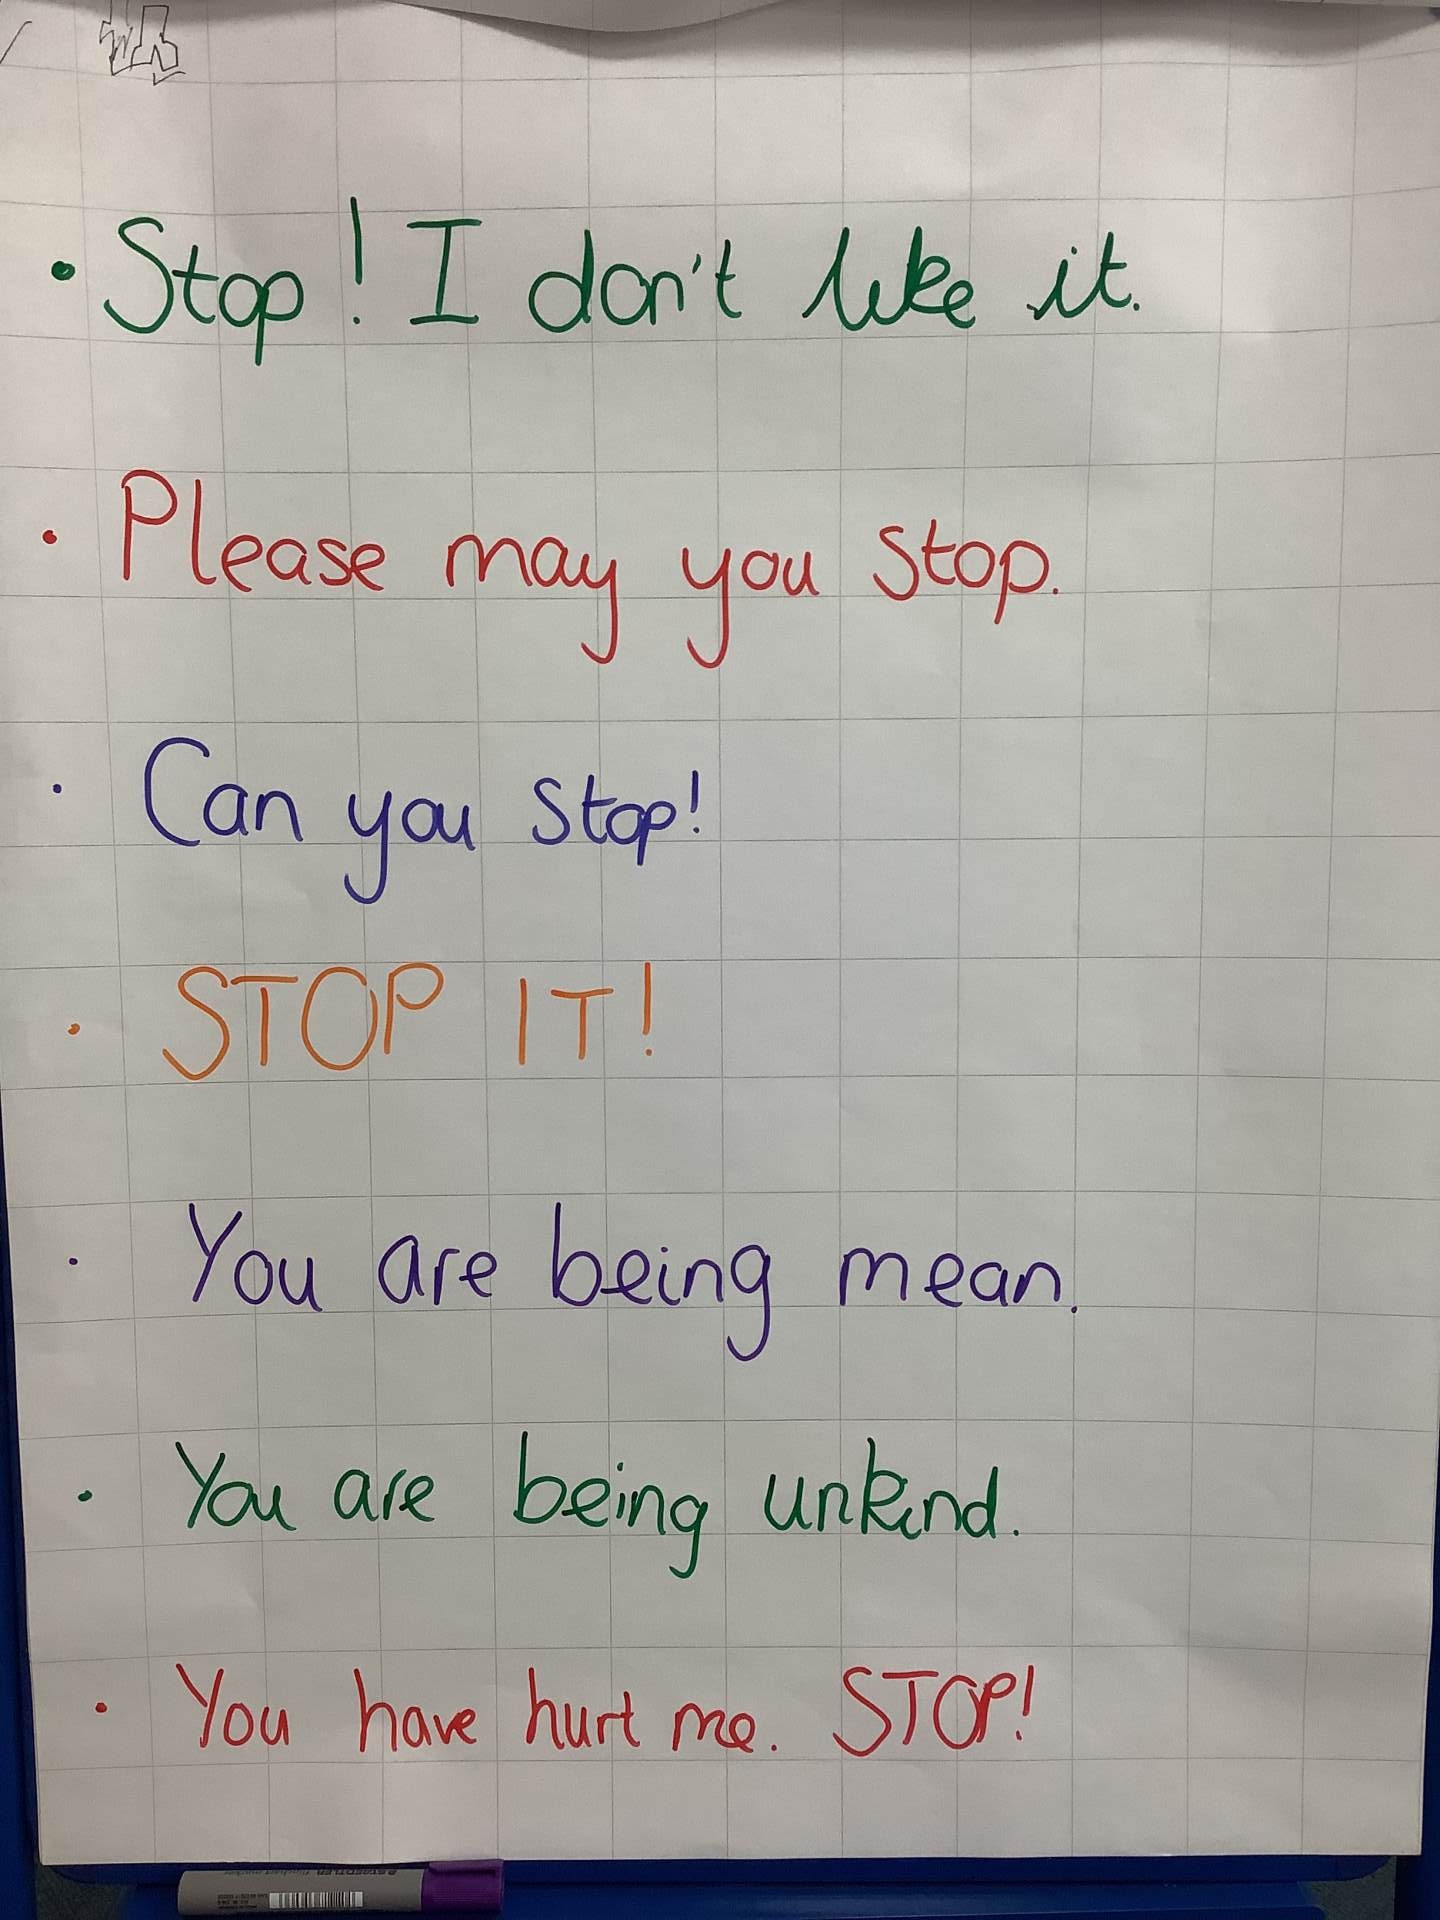 • Stop! I don't like it.
• Please may you stop.
• Can you stop!
• STOP IT!
• You are being mean.
• You are being unkind.
• You have hurt me. STOP!
STAEDTLER